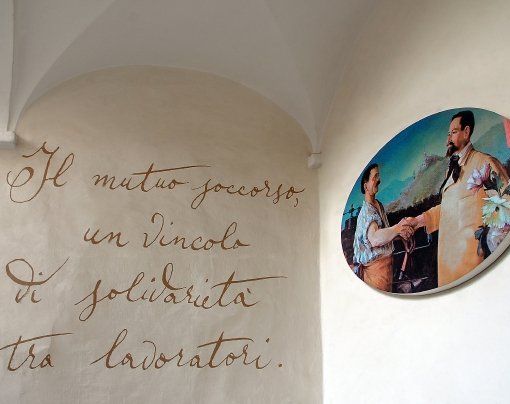 Il mutuo soccorso,
un vincolo
di solidarietà
tra lavoratori.